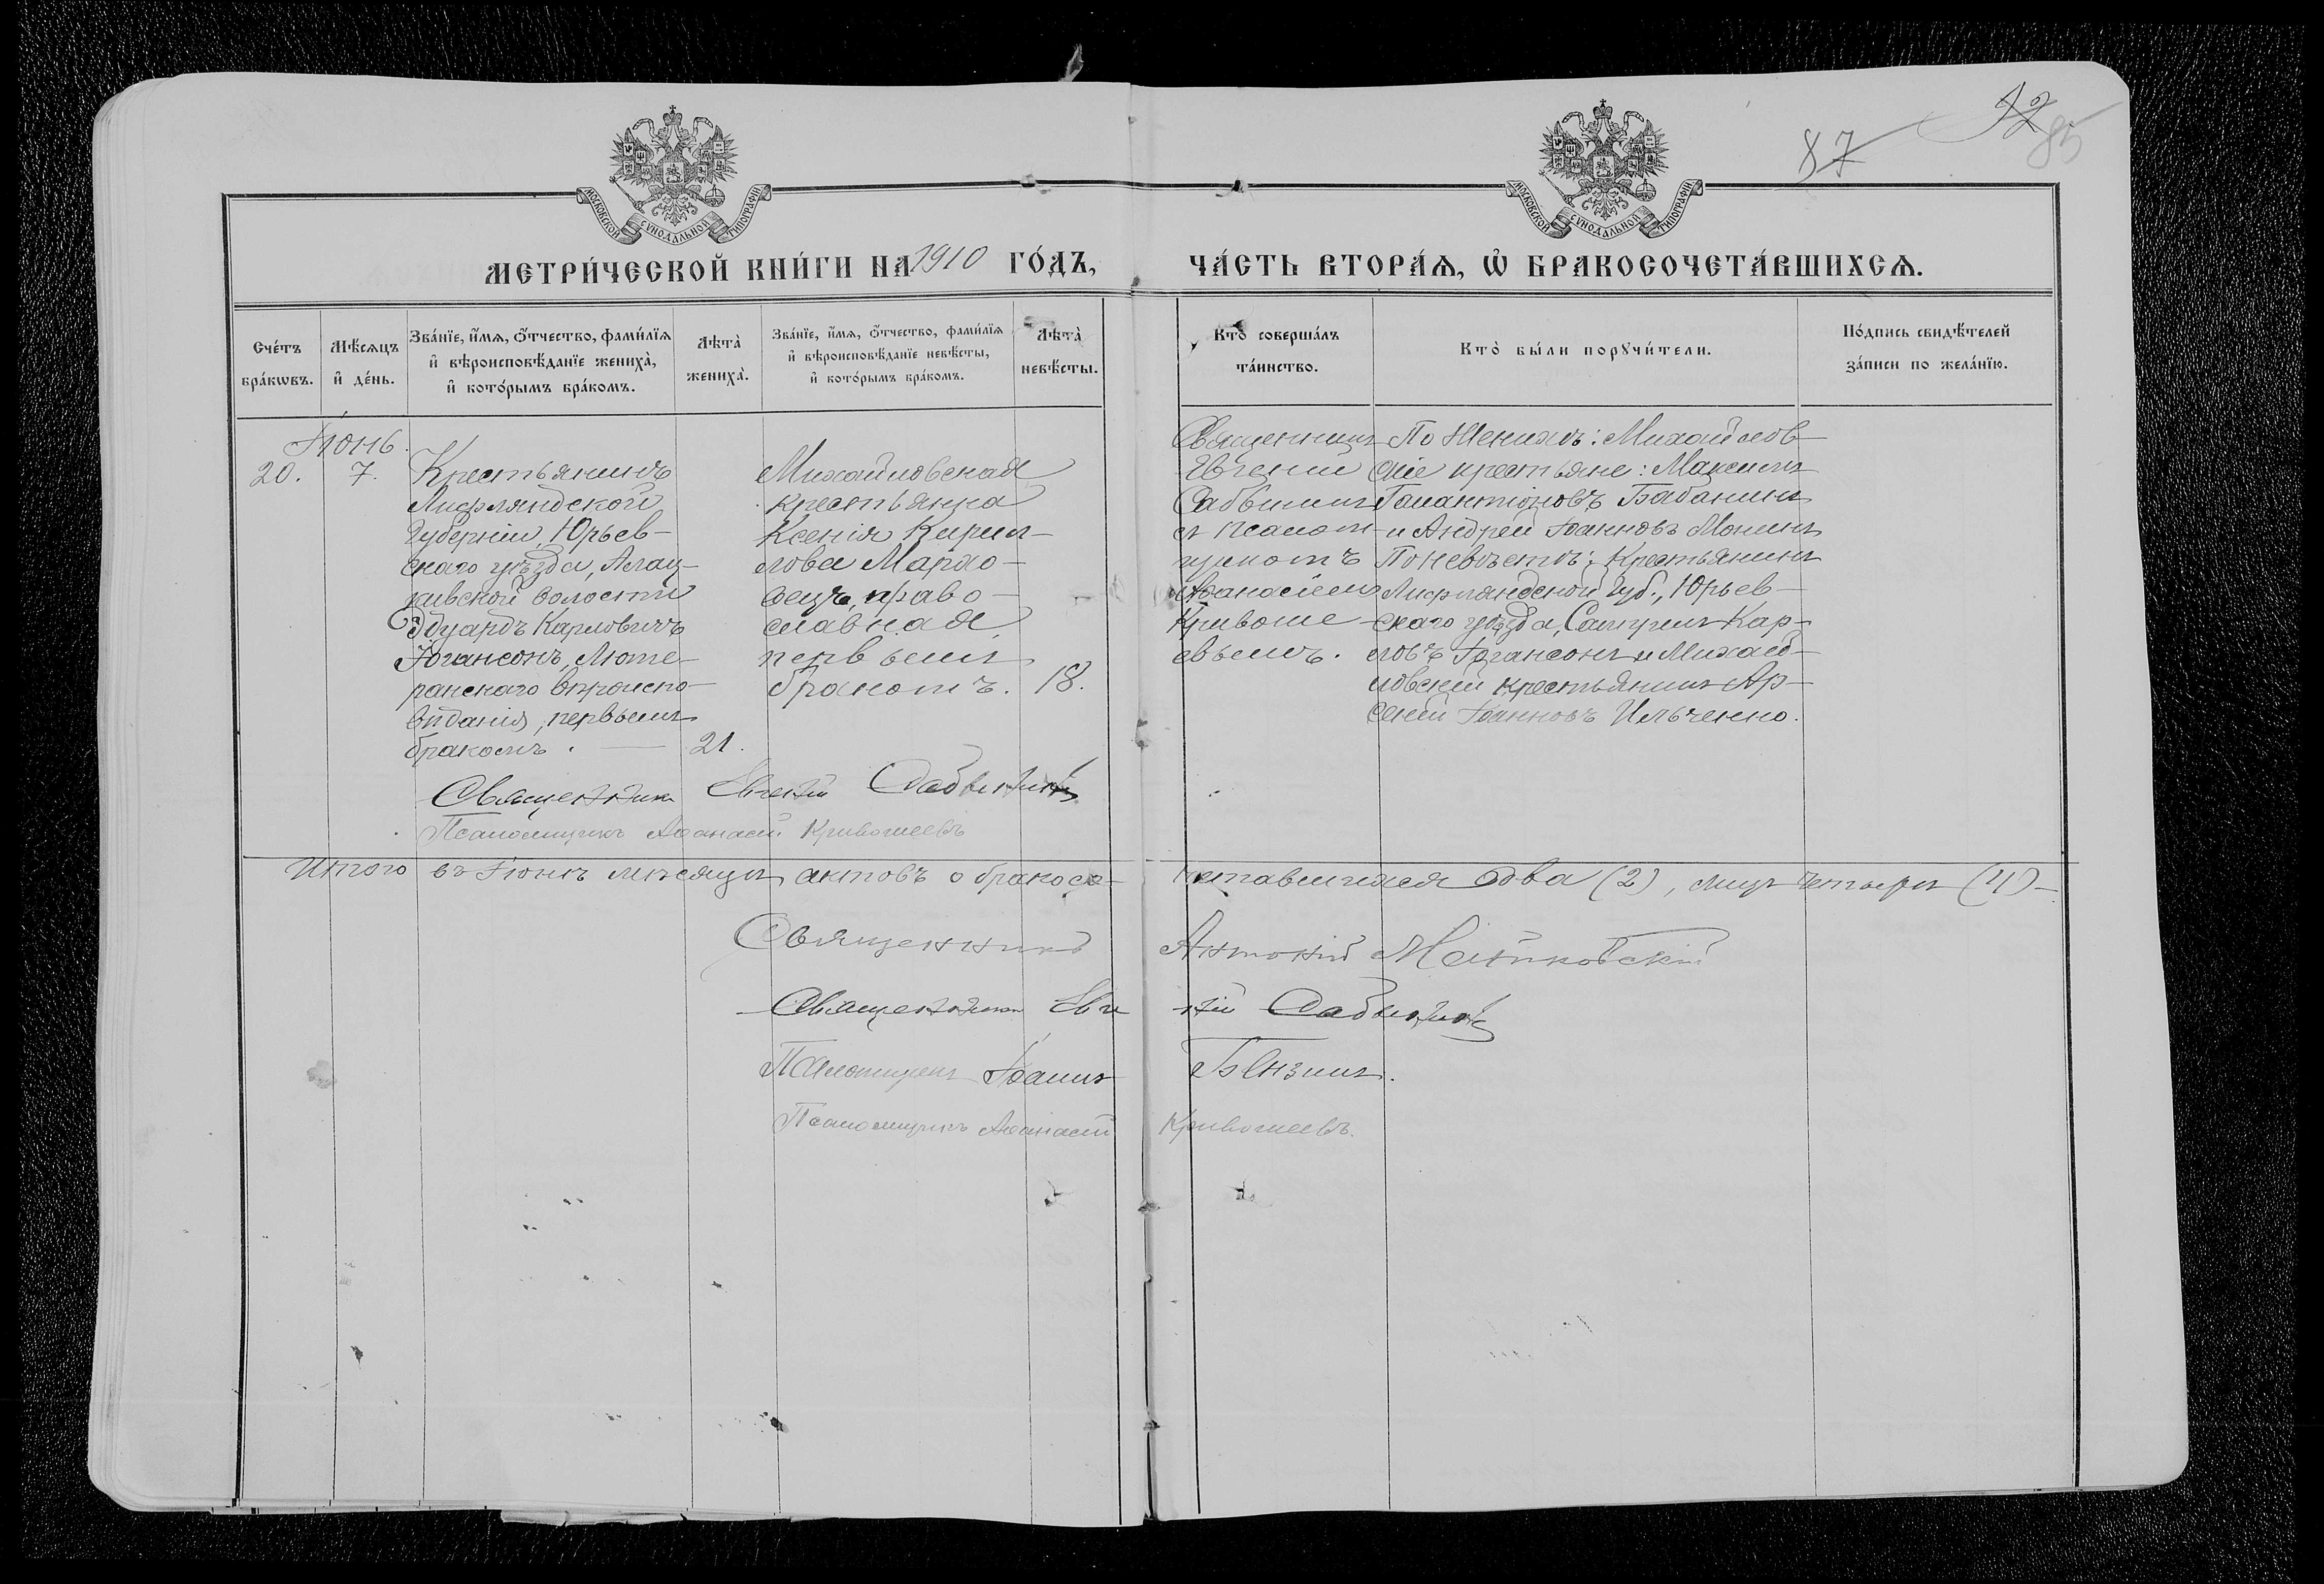 87
12
85
МОСКОВСКОЙ СѴНОДАЛЬНОЙ ТИПОГРАФІИ
МОСКОВСКОЙ СѴНОДАЛЬНОЙ ТИПОГРАФІИ
МЕТРИ́ЧЕСКОЙ КНИ́ГИ НА 1910 ГО́ДЪ,
ЧА́СТЬ ВТОРА́Ѧ, Ѿ БРАКОСОЧЕТА́ВШИХСѦ.
Сче́тъ бра́кѡвъ.
Мѣ́сяцъ и҆ де́нь.
Зва́нїе, и҆́мѧ, ѻ҆́тчество, фами́лїѧ и҆ вѣроисповѣ́данїе жениха̀, и҆ кото́рымъ бра́комъ.
Лѣта̀ жениха̀.
Зва́нїе, и҆́мѧ, ѻ҆́тчество, фами́лїѧ и҆ вѣроисповѣ́данїе невѣ́сты, и҆ кото́рымъ бра́комъ.
Лѣта̀ невѣ́сты.
Кто̀ соверша́лъ та́инство.
Кто̀ бы́ли порꙋчи́тели.
По́дпись свидѣ́телей за́писи по жела́нїю.
Іюнь
20.
7.
Крестьянинъ
Лифляндской
Губерніи, Юрьев-
скаго уѣзда, Алац-
кивской волости
Эдуардъ Карловичъ
Іогансонъ, Люте-
ранскаго вѣроиспо-
вѣданія, первымъ
бракомъ. — 21.
Михайловская
крестьянка
Ксенія Кирил-
лова
право-
славная,
первымъ
бракомъ. 18.
Священникъ
Евгеній
Сабынинъ
съ псалом-
щикомъ
Аѳанасіемъ
Кривоше-
евымъ.
По Женихѣ: Михайлов-
скіе крестьяне: Максимъ
Галактіоновъ Бабанинъ
и Андрей Іоанновъ Монинъ
По невѣстѣ: Крестьянинъ
Лифляндской Губ., Юрьев-
скаго уѣзда, Кар-
ловъ Іогансонъ и Михай-
ловскій крестьянинъ Ар-
сеній Іоанновъ Ильченко.
Священникъ Евгеній Сабынинъ
Псаломщикъ Аѳанасій Кривошеевъ
Итого въ Іюнѣ мѣсяцѣ актовъ о бракосо-
четавшихся два (2), лицъ четыре (4) —
Священникъ Антоній
Священникъ Евгеній Сабынинъ
Псаломщикъ Іоаннъ Бензинъ.
Псаломщикъ Аѳанасій Кривошеевъ.